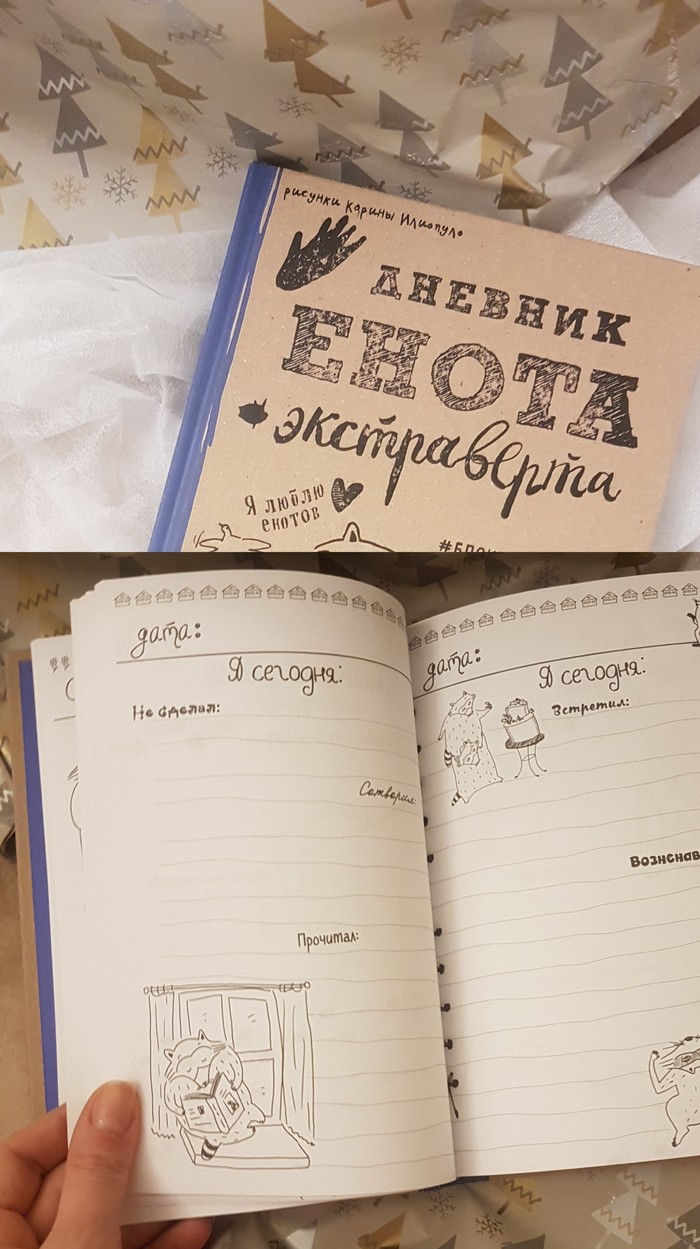 рисунки Карины Илиопуло
ДНЕВНИК
ЕНОТА
экстраверта
Я люблю
енотов
дата:
Я сегодня:
Не сделал:
Сотворил:
Прочитал:
дата:
Я сегодня:
Встретил: